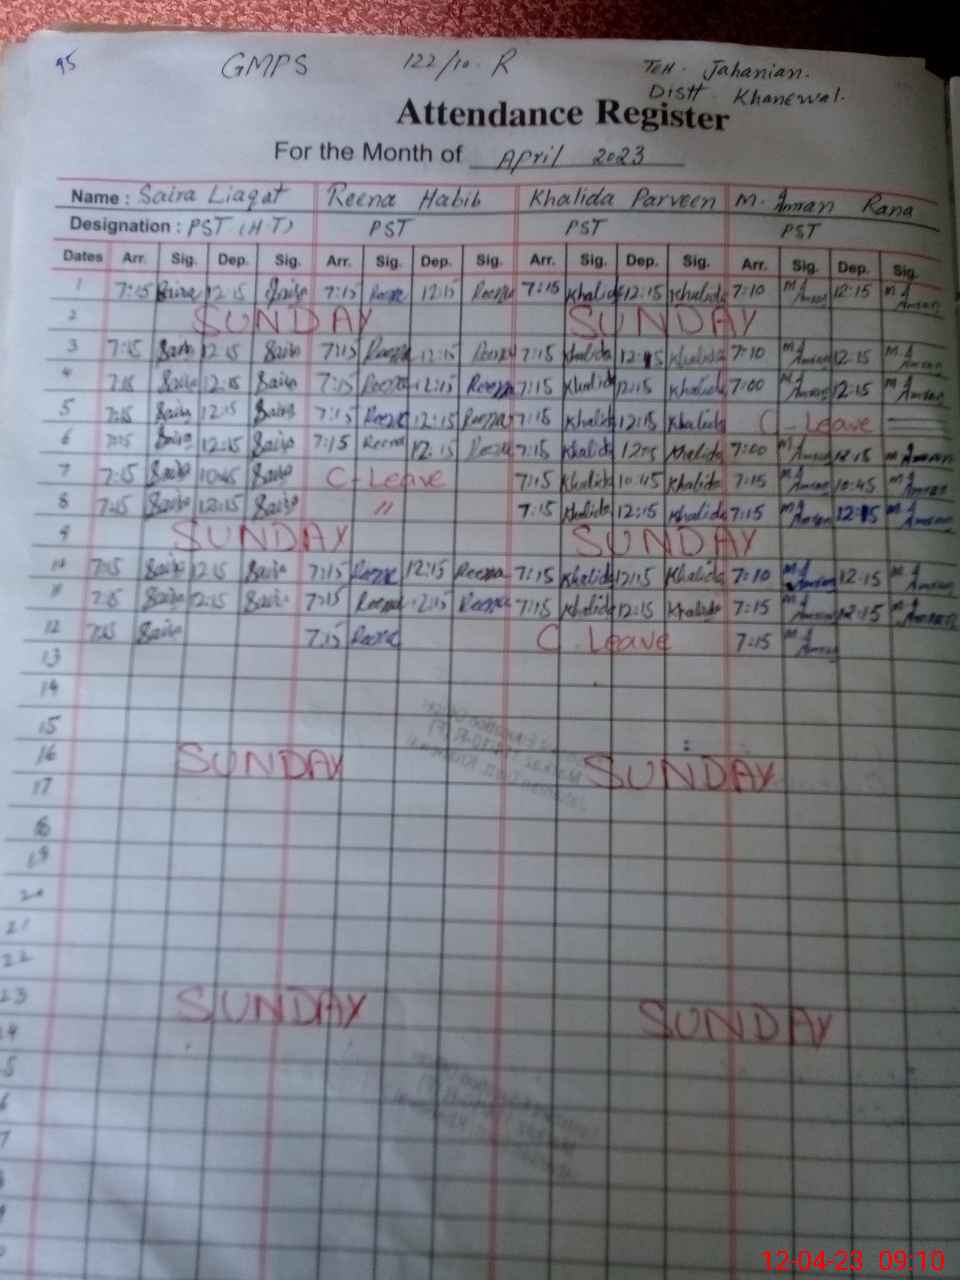 95 GMPS 122/10-R Teh. Jahanian.
Distt Khanewal.
Attendance Register
For the Month of April 2023
Name : Saira Liaqat Reena Habib Khalida Parveen M. Amman Rana
Designation : PST (H.T) PST PST PST
Dates Arr. Sig. Dep. Sig. Arr. Sig. Dep. Sig. Arr. Sig. Dep. Sig. Arr. Sig. Dep. Sig.
1 7:15 Saira 12:15 Saira 7:15 Reena 12:15 Reena 7:15 Khalida 12:15 Khalida 7:10 12:15
2 SUNDAY SUNDAY
3 7:15 Saira 12:15 Saira 7:15 Reena 12:15 Reena 7:15 Khalida 12:15 Khalida 7:10 12:15
4 7:15 Saira 12:15 Saira 7:15 Reena 12:15 Reena 7:15 Khalida 12:15 Khalida 7:00 12:15
5 7:15 Saira 12:15 Saira 7:15 Reena 12:15 Reena 7:15 Khalida 12:15 Khalida C-Leave
6 7:15 Saira 12:15 Saira 7:15 Reena 12:15 Reena 7:15 Khalida 12:15 Khalida 7:00 12:15
7 7:15 Saira 10:45 Saira C-Leave 7:15 Khalida 10:45 Khalida 7:15 10:45
8 7:15 Saira 12:15 Saira 〃 7:15 Khalida 12:15 Khalida 7:15 12:15
9 SUNDAY SUNDAY
10 7:15 Saira 12:15 Saira 7:15 Reena 12:15 Reena 7:15 Khalida 12:15 Khalida 7:10 12:15
11 7:15 Saira 12:15 Saira 7:15 Reena 12:15 Reena 7:15 Khalida 12:15 Khalida 7:15 12:15
12 7:15 Saira 7:15 Reena C Leave 7:15
13
14
15
16 SUNDAY SUNDAY
17
18
19
20
21
22
23 SUNDAY SUNDAY
4
5
6
7
8
9
0
12-04-23 09:10